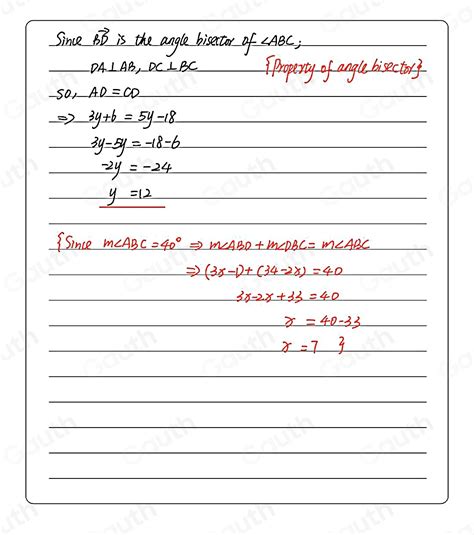 Since BD⃗ is the angle bisector of ∠ABC;
DA⊥AB, DC⊥BC {Property of angle bisector}
SO, AD = CD
⇒ 3y+6 = 5y-18
3y-5y = -18-6
-2y = -24
y = 12
{Since m∠ABC = 40° ⇒ m∠ABD + m∠DBC = m∠ABC
⇒ (3x-1) + (34-2x) = 40
3x-2x + 33 = 40
x = 40-33
x = 7 }